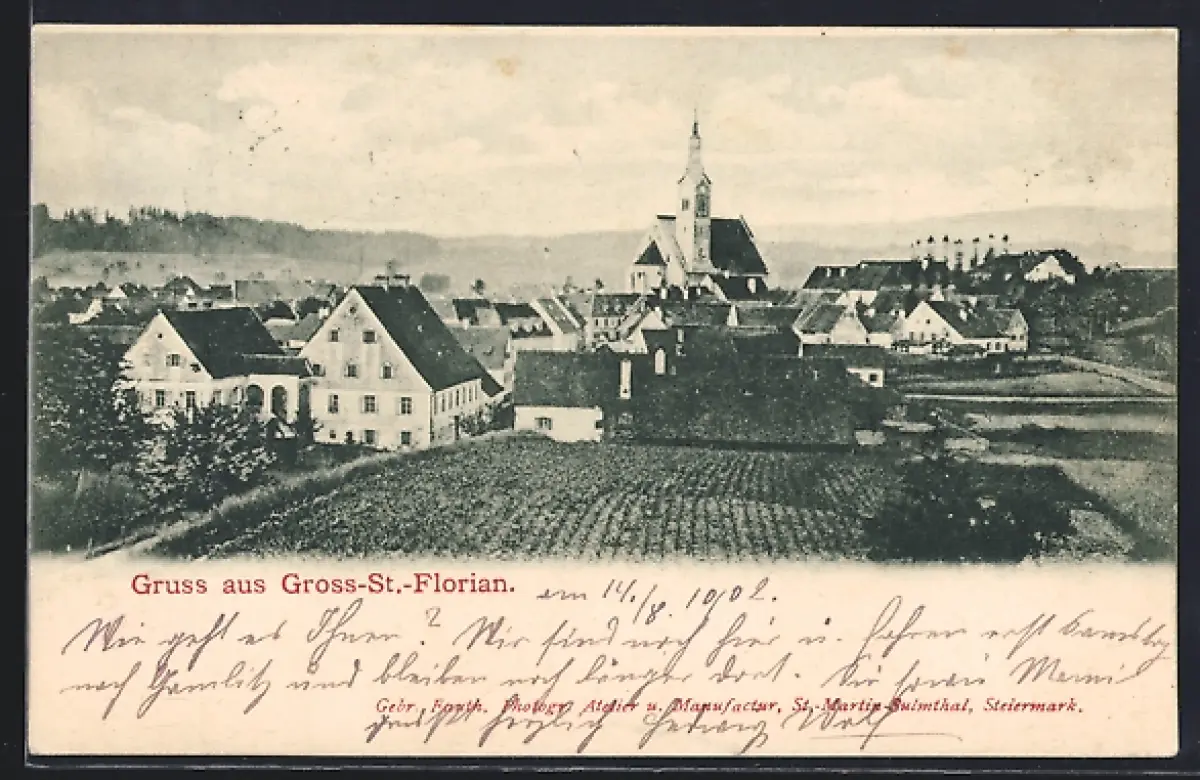 Gruss aus Gross-St.-Florian. am 14./8. 1902.
Wie geht es Ihnen? Wir sind noch hier u. fahren erst Samstag
nach Gamlitz und bleiben noch länger dort. Sie sowie Mami
Gebr. Fauth. Photogr. Atelier u. Manufactur, St. Martin-Sulmthal, Steiermark.
grüßt herzlich Hedwig Wolf